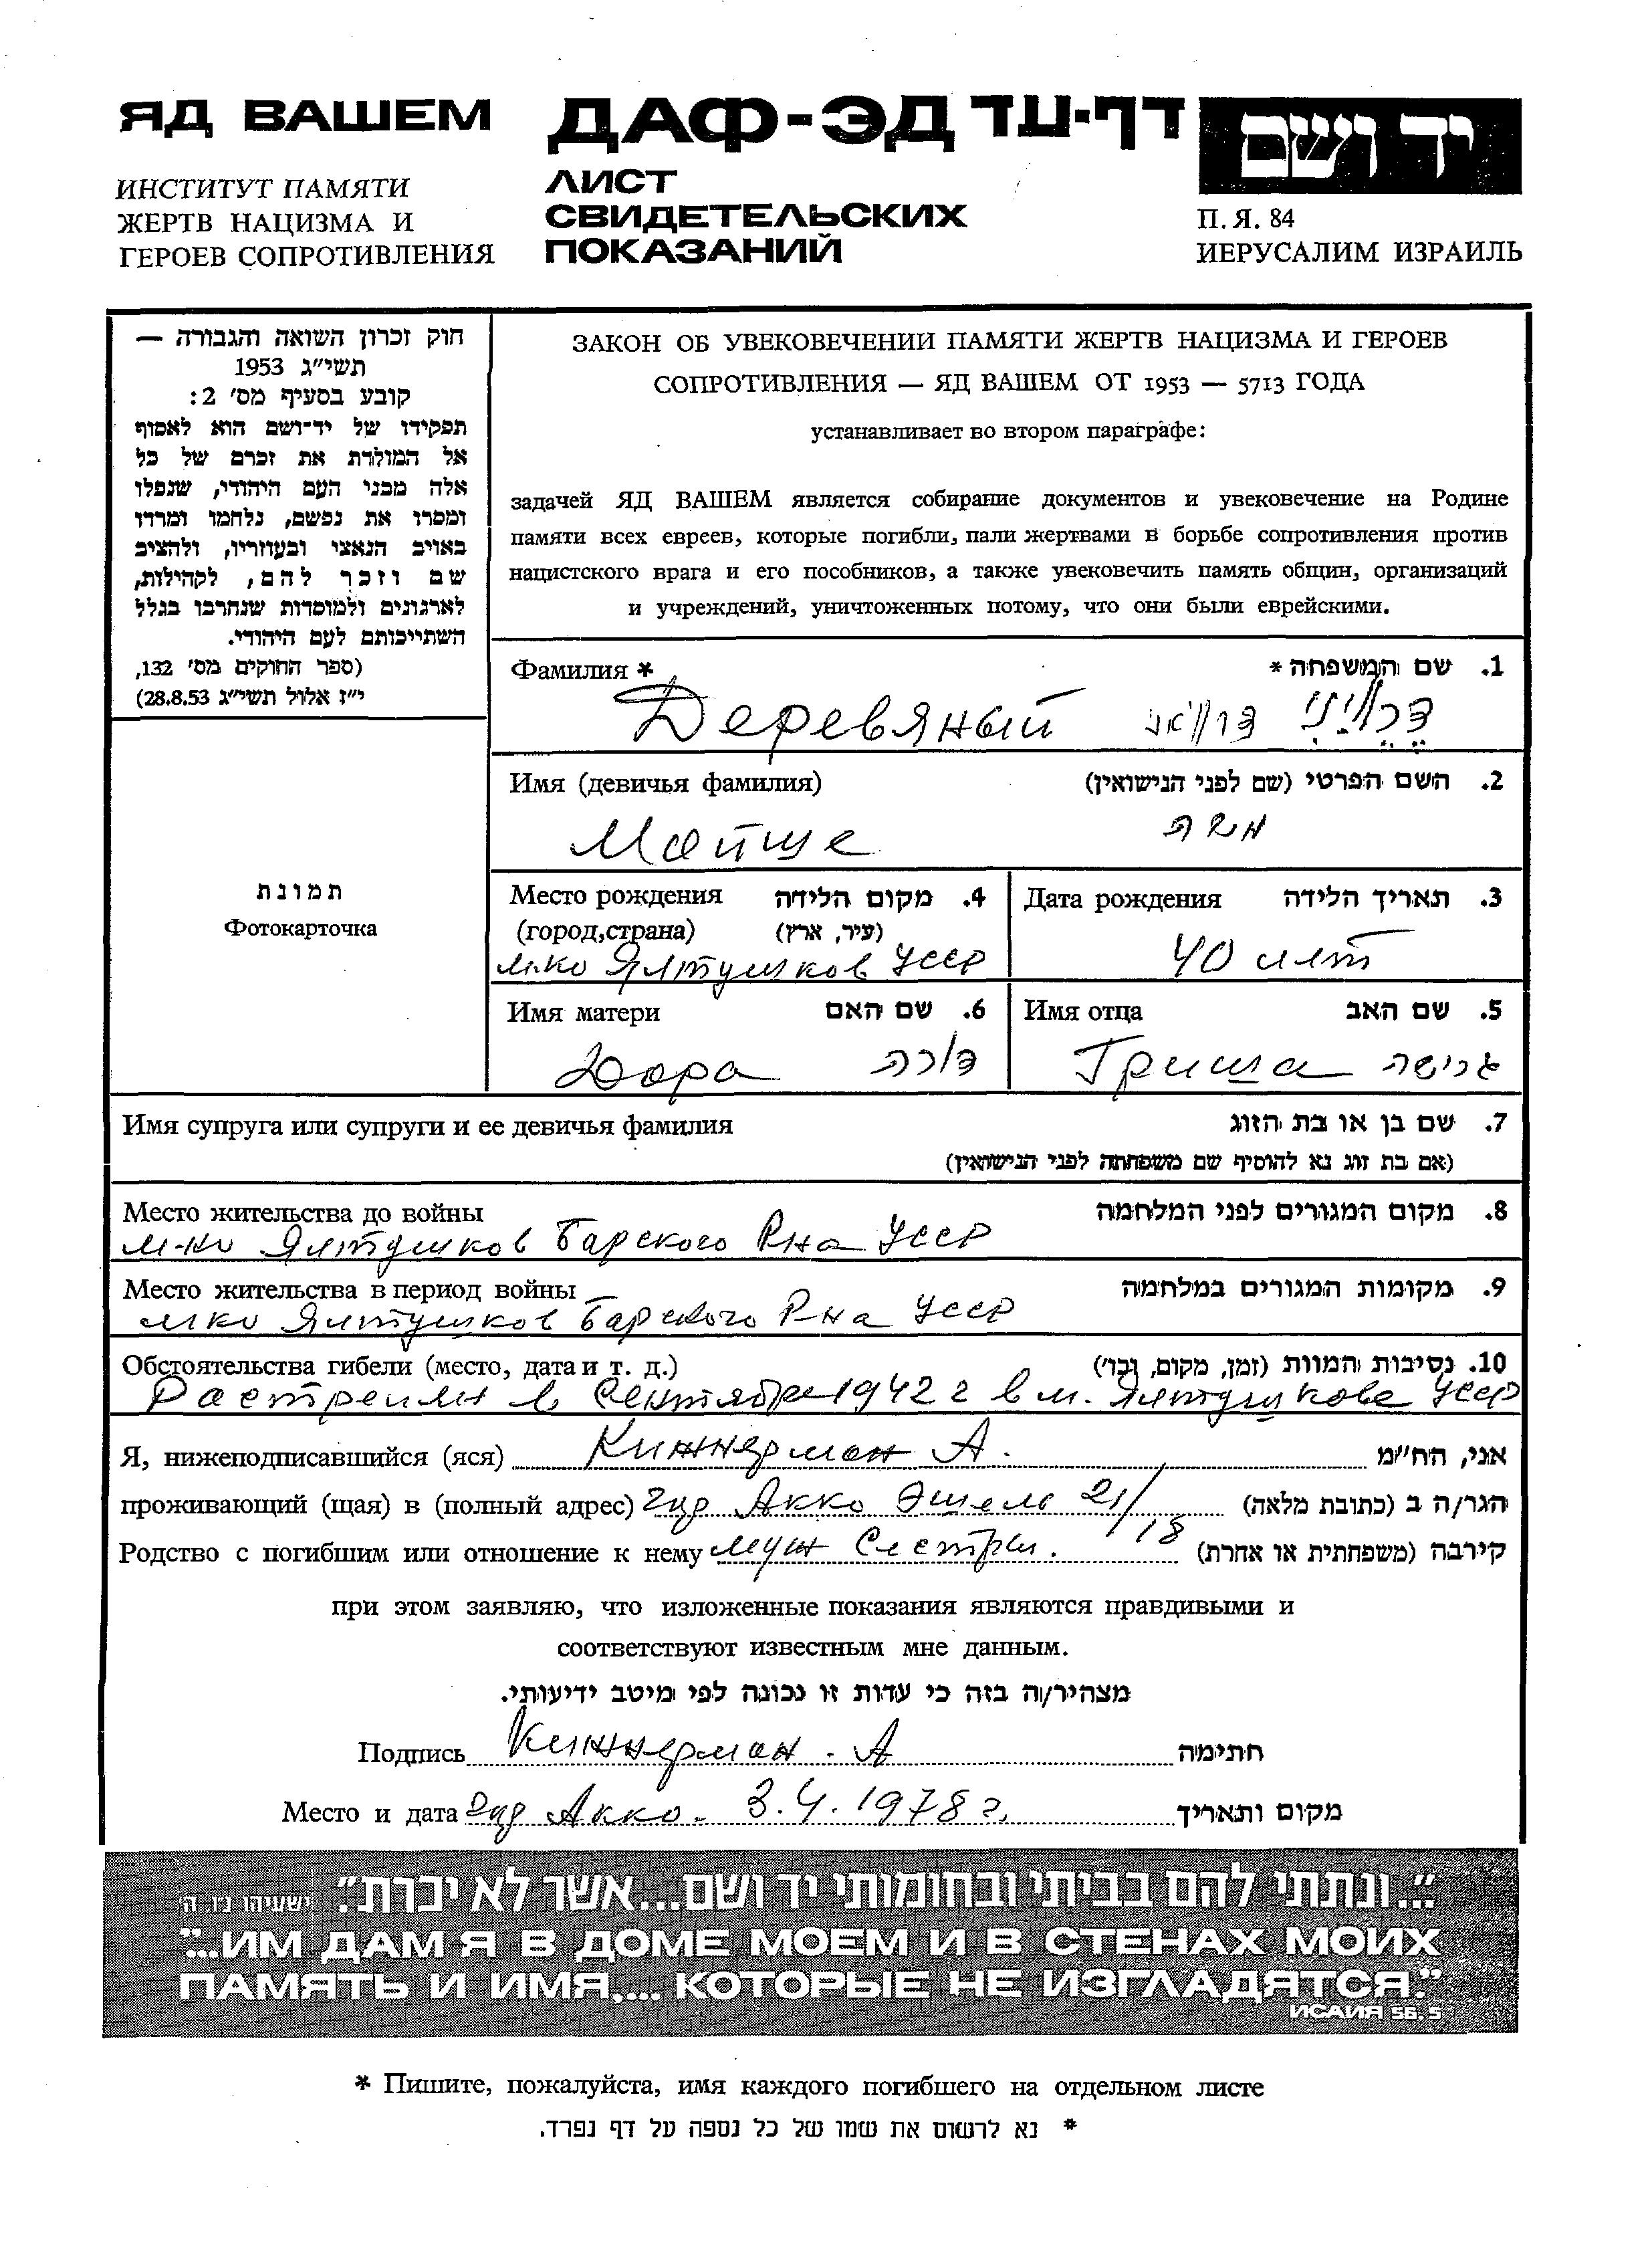 ЯД ВАШЕМ
ИНСТИТУТ ПАМЯТИ
ЖЕРТВ НАЦИЗМА И
ГЕРОЕВ СОПРОТИВЛЕНИЯ
ДАФ-ЭД דף-עד
ЛИСТ
СВИДЕТЕЛЬСКИХ
ПОКАЗАНИЙ
יד ושם
П. Я. 84
ИЕРУСАЛИМ ИЗРАИЛЬ
חוק זכרון השואה והגבורה —
תשי״ג 1953
קובע בסעיף מס׳ 2:
תפקידו של יד־ושם הוא לאסוף
אל המולדת את זכרם של כל
אלה מבני העם היהודי, שנפלו
ומסרו את נפשם, נלחמו ומרדו
באויב הנאצי ובעוזריו, ולהציב
שם וזכר להם, לקהילות,
לארגונים ולמוסדות שנחרבו בגלל
השתייכותם לעם היהודי.
(ספר החוקים מס׳ 132,
י״ז אלול תשי״ג 28.8.53)
ЗАКОН ОБ УВЕКОВЕЧЕНИИ ПАМЯТИ ЖЕРТВ НАЦИЗМА И ГЕРОЕВ
СОПРОТИВЛЕНИЯ — ЯД ВАШЕМ ОТ 1953 — 5713 ГОДА
устанавливает во втором параграфе:
задачей ЯД ВАШЕМ является собирание документов и увековечение на Родине
памяти всех евреев, которые погибли, пали жертвами в борьбе сопротивления против
нацистского врага и его пособников, а также увековечить память общин, организаций
и учреждений, уничтоженных потому, что они были еврейскими.
Фамилия * 1. שם המשפחה *
Деревяный
Имя (девичья фамилия) 2. השם הפרטי (שם לפני הנישואין)
Мойше משה
תמונת
Фотокарточка
Место рождения 4. מקום הלידה
(город,страна) (עיר, ארץ)
м-ко Ялтушков УССР
Дата рождения 3. תאריך הלידה
40 лет
Имя матери 6. שם האם
Дора דורה
Имя отца 5. שם האב
Гриша גרישה
Имя супруга или супруги и ее девичья фамилия 7. שם בן או בת הזוג
(אם בת זוג נא להוסיף שם משפחתה לפני הנישואין)
Место жительства до войны 8. מקום המגורים לפני המלחמה
м-ко Ялтушков Барского Р-на УССР
Место жительства в период войны 9. מקומות המגורים במלחמה
м-ко Ялтушков Барского Р-на УССР
Обстоятельства гибели (место, дата и т. д.) 10. נסיבות המוות (זמן, מקום, וכו׳)
Растрелян в Сентябре 1942 г в м. Ялтушкове УССР
Я, нижеподписавшийся (яся) Кинжерман А. אני, הח״מ
проживающий (щая) в (полный адрес) гор Акко Эшель 21/18 הגר/ה ב (כתובת מלאה)
Родство с погибшим или отношение к нему муж Сестры. קירבה (משפחתית או אחרת)
при этом заявляю, что изложенные показания являются правдивыми и
соответствуют известным мне данным.
מצהיר/ה בזה כי עדות זו נכונה לפי מיטב ידיעותי.
Подпись Кинжерман. А חתימה
Место и дата гор Акко. 3.4.1978 г. מקום ותאריך
"...ונתתי להם בביתי ובחומותי יד ושם...אשר לא יכרת". ישעיהו נ״ו, ה׳
"...ИМ ДАМ Я В ДОМЕ МОЕМ И В СТЕНАХ МОИХ
ПАМЯТЬ И ИМЯ.... КОТОРЫЕ НЕ ИЗГЛАДЯТСЯ."
ИСАИЯ 56.5
* Пишите, пожалуйста, имя каждого погибшего на отдельном листе
* נא לרשום את שמו של כל נספה על דף נפרד.